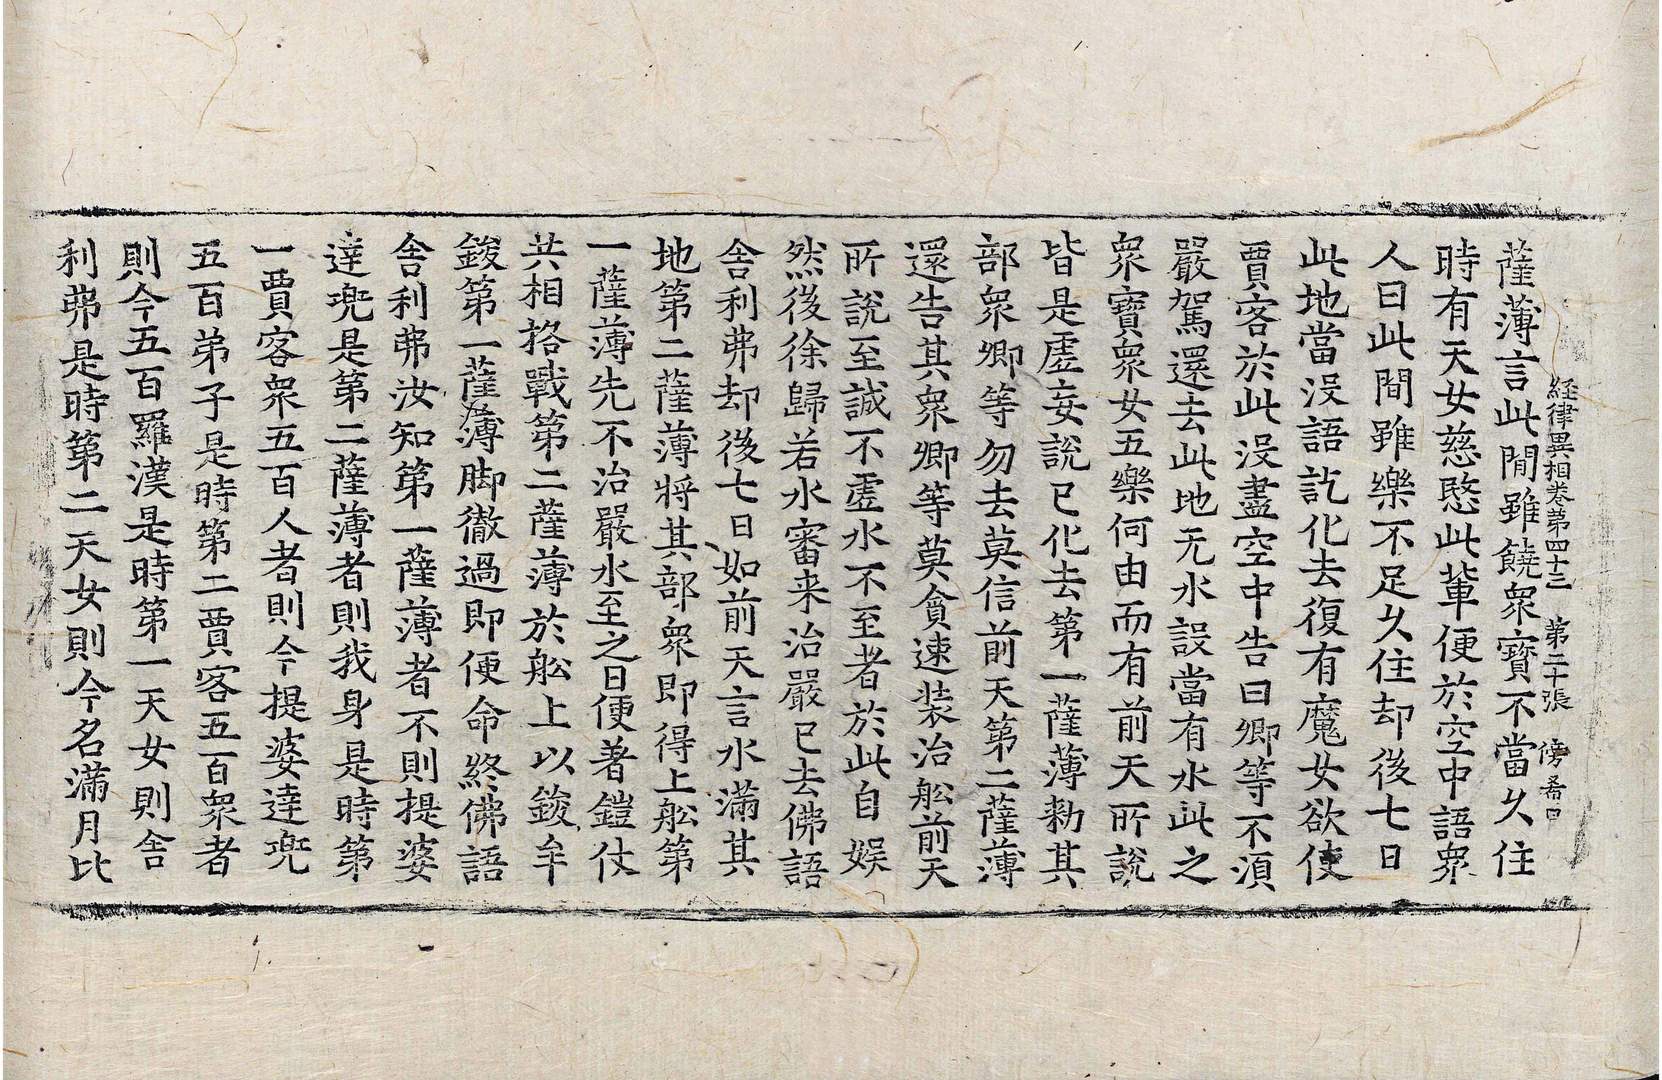 経律異相卷第四十三 第二十張 傍
薩薄言此間雖饒衆寶不當久住
時有天女慈愍此輩便於空中語衆
人曰此間雖樂不足久住却後七日
此地當沒語訖化去復有魔女欲使
賈客於此沒盡空中告曰卿等不湏
嚴駕還去此地无水設當有水此之
衆寶衆女五樂何由而有前天所說
皆是虛妄說已化去第一薩薄勑其
部衆卿等勿去莫信前天第二薩薄
還告其衆卿等莫貪速装治舩前天
所說至誠不虛水不至者於此自娱
然後徐歸若水審来治嚴已去佛語
舍利弗却後七日如前天言水滿其
地第二薩薄將其部衆即得上舩第
一薩薄先不治嚴水至之日便著鎧仗
共相挌戰第二薩薄於舩上以鋑牟
鋑第一薩薄脚徹過即便命終佛語
舍利弗汝知第一薩薄者不則提婆
達兜是第二薩薄者則我身是時第
一賈客衆五百人者則今提婆達兜
五百弟子是時第二賈客五百衆者
則今五百羅漢是時第一天女則舍
利弗是時第二天女則今名滿月比